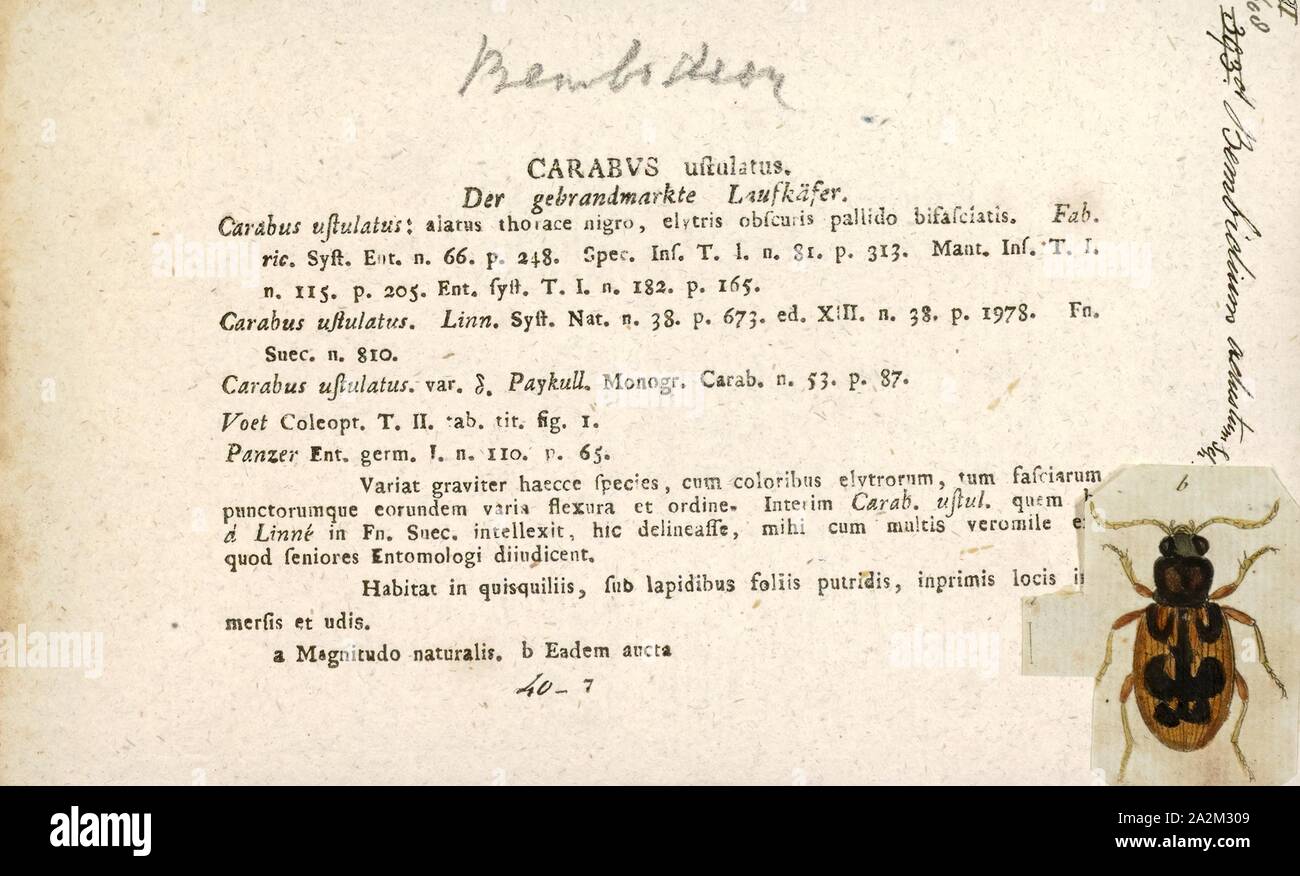 Bembidion
CARABVS uſtulatus.
Der gebrandmarkte Laufkäfer.
Carabus uſtulatus: alatus thorace nigro, elytris obſcuris pallido bifaſciatis. Fab.
ric. Syſt. Ent. n. 66. p. 248. Spec. Inſ. T. I. n. 81. p. 313. Mant. Inſ. T. I.
n. 115. p. 205. Ent. ſyſt. T. I. n. 182. p. 165.
Carabus uſtulatus. Linn. Syſt. Nat. n. 38. p. 673. ed. XIII. n. 38. p. 1978. Fn.
Suec. n. 810.
Carabus uſtulatus. var. δ. Paykull. Monogr. Carab. n. 53. p. 87.
Voet Coleopt. T. II. tab. tit. fig. 1.
Panzer Ent. germ. I. n. 110. p. 65.
Variat graviter haecce ſpecies, cum coloribus elytrorum, tum faſciarum
punctorumque eorundem varia flexura et ordine. Interim Carab. uſtul. quem
d Linné in Fn. Suec. intellexit, hic delineaſſe, mihi cum multis veromile
quod ſeniores Entomologi diiudicent.
Habitat in quisquiliis, ſub lapidibus foliis putridis, inprimis locis im
merſis et udis.
a Magnitudo naturalis. b Eadem aucta
40-7
68
393. Bembidium adustum
b
alamy
Image ID: 2A2M309
www.alamy.com